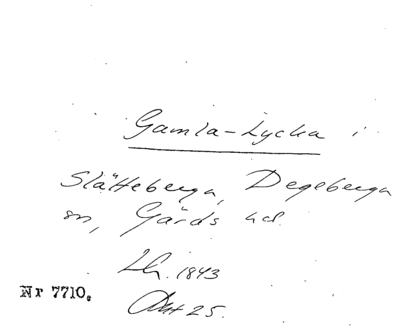 Gamla-Lycka i
Slätteberga, Degeberga
sn, Gärds hd.
Lh. 1843
Akt 25.
Nr 7710.